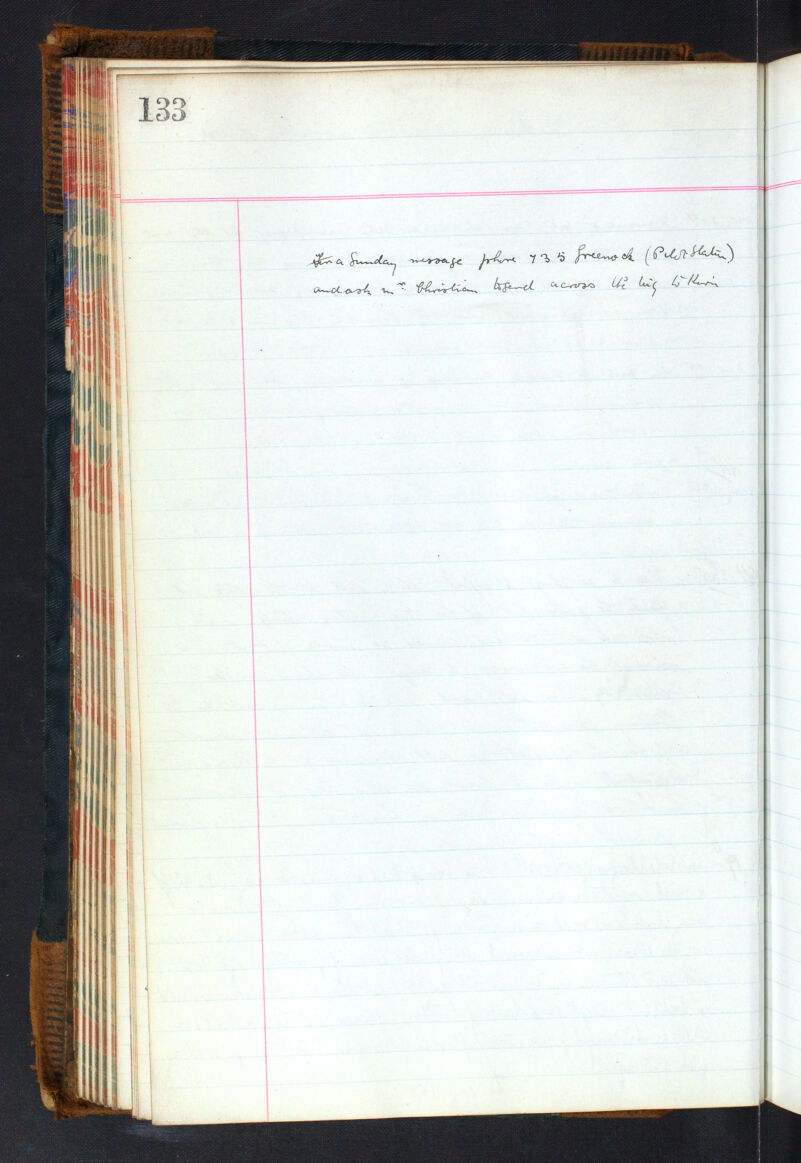 133
For a Sunday message phone 735 Greenock (Pilot Station)
and ask Mr. Christian to send across the tug to